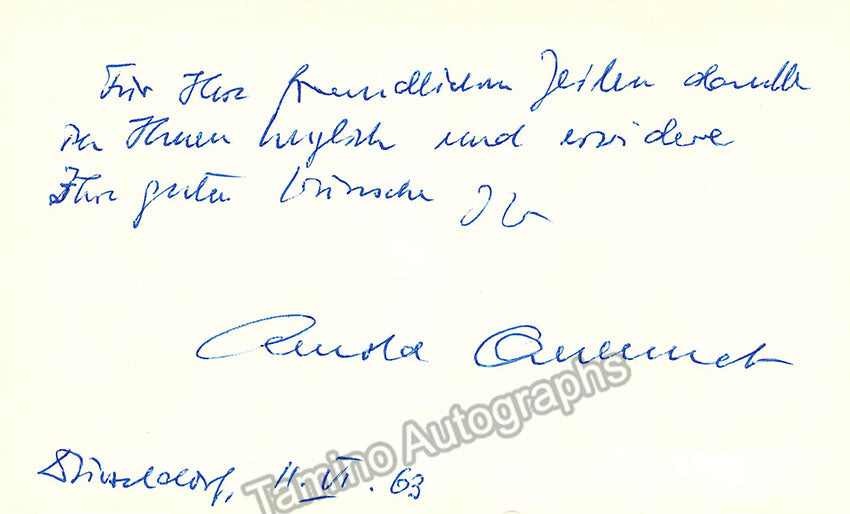 Für Ihre freundlichen Zeilen danke
ich Ihnen herzlich und erwidere
Ihre guten Wünsche Ihr
Arnold Quennet
Düsseldorf, 11. VI. 63
Tamino Autographs